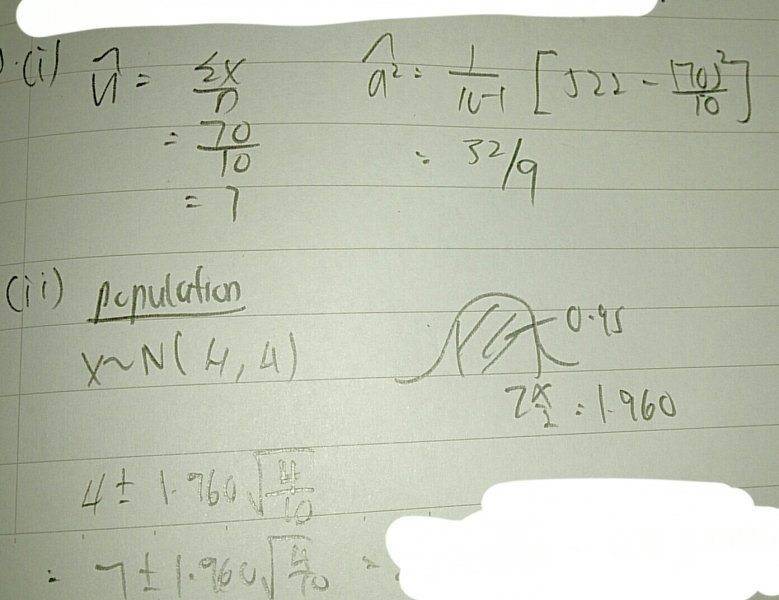 (i) û = Σx/n
σ̂² = 1/(10-1) [522 - (70)²/10]
= 70/10
= 32/9
= 7
(ii) population
X~N(μ, 4)
0.95
Zα/2 = 1.960
μ ± 1.960√(4/10)
= 7 ± 1.960√(4/10) =